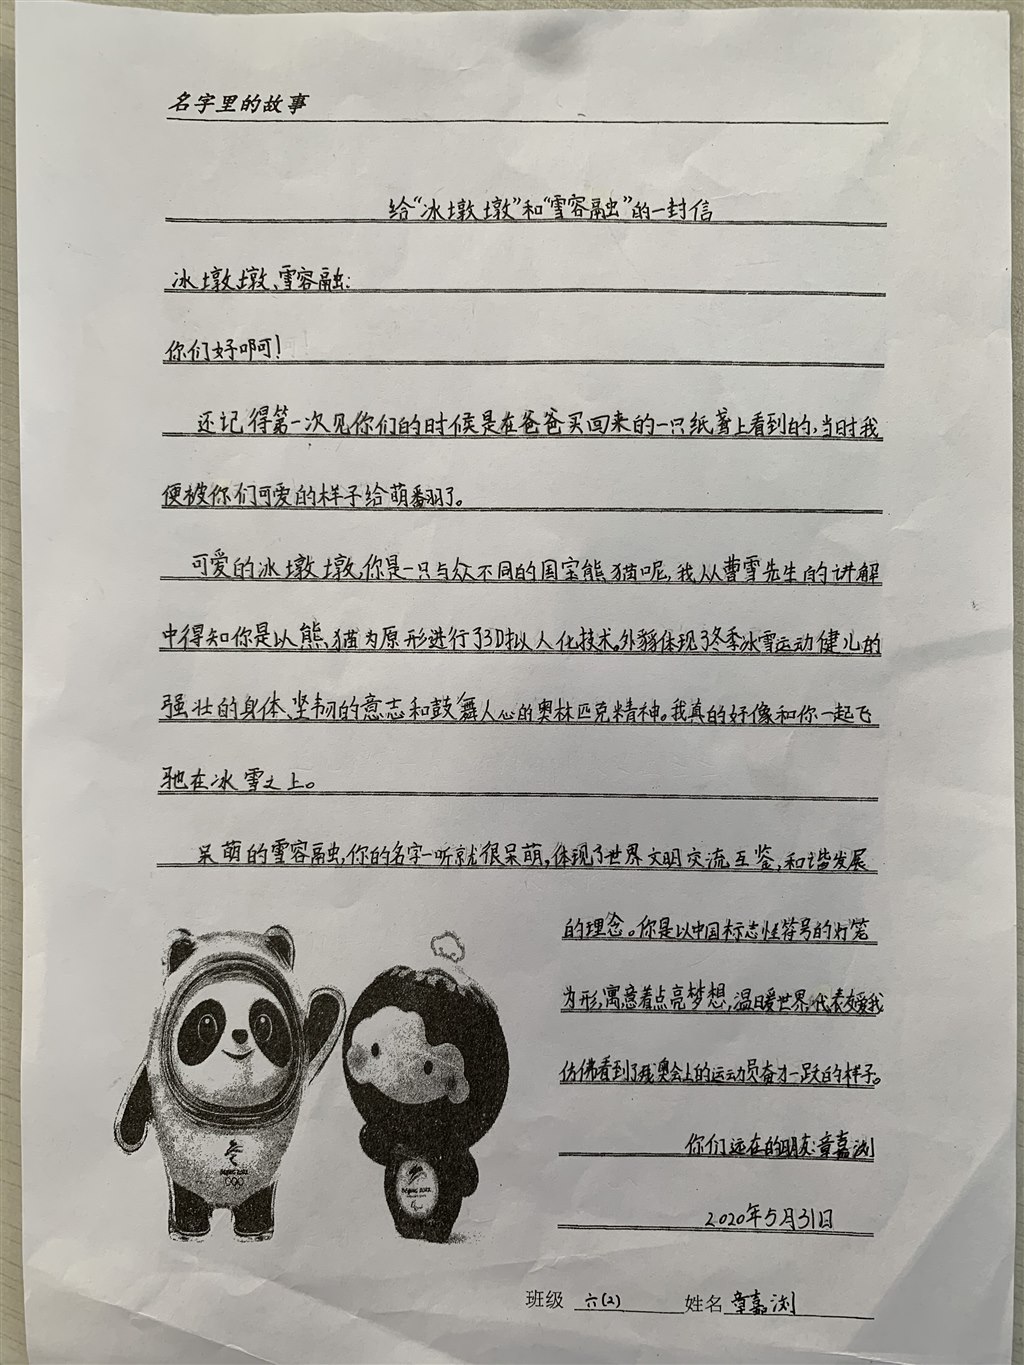 名字里的故事
给“冰墩墩”和“雪容融”的一封信
冰墩墩、雪容融:
你们好啊!
还记得第一次见你们的时候是在爸爸买回来的一只纸箸上看到的,当时我
便被你们可爱的样子给萌翻了。
可爱的冰墩墩,你是一只与众不同的国宝熊猫呢,我从曹雪先生的讲解
中得知你是以熊猫为原形进行了3D拟人化技术。外貌体现了冬季冰雪运动健儿的
强壮的身体、坚韧的意志和鼓舞人心的奥林匹克精神。我真的好像和你一起飞
驰在冰雪之上。
呆萌的雪容融,你的名字一听就很呆萌,体现了世界文明交流互鉴,和谐发展
的理念。你是以中国标志性符号的灯笼
为形,寓意着点亮梦想,温暖世界,代表友爱,我
仿佛看到了残奥会上的运动员奋力一跃的样子。
你们远在的朋友:章嘉浏
2020年5月31日
BEIJING 2022
BEIJING 2022
班级 六(2) 姓名 章嘉浏